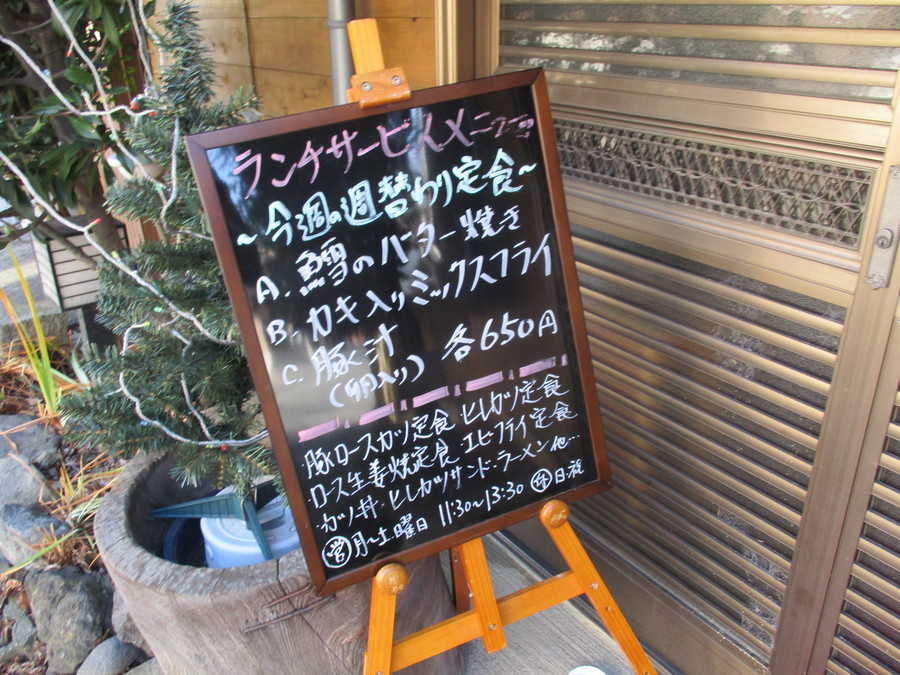 ランチサービスメニュー
~今週の週替わり定食~
A. 鱈のバター焼き
B. カキ入りミックスフライ
C. 豚汁
(卵入り) 各650円
・豚ロースカツ定食 ヒレカツ定食
・ロース生姜焼定食 エビフライ定食
・カツ丼・ヒレカツサンド・ラーメン他…
営月~土曜日 11:30~13:30 休日・祝